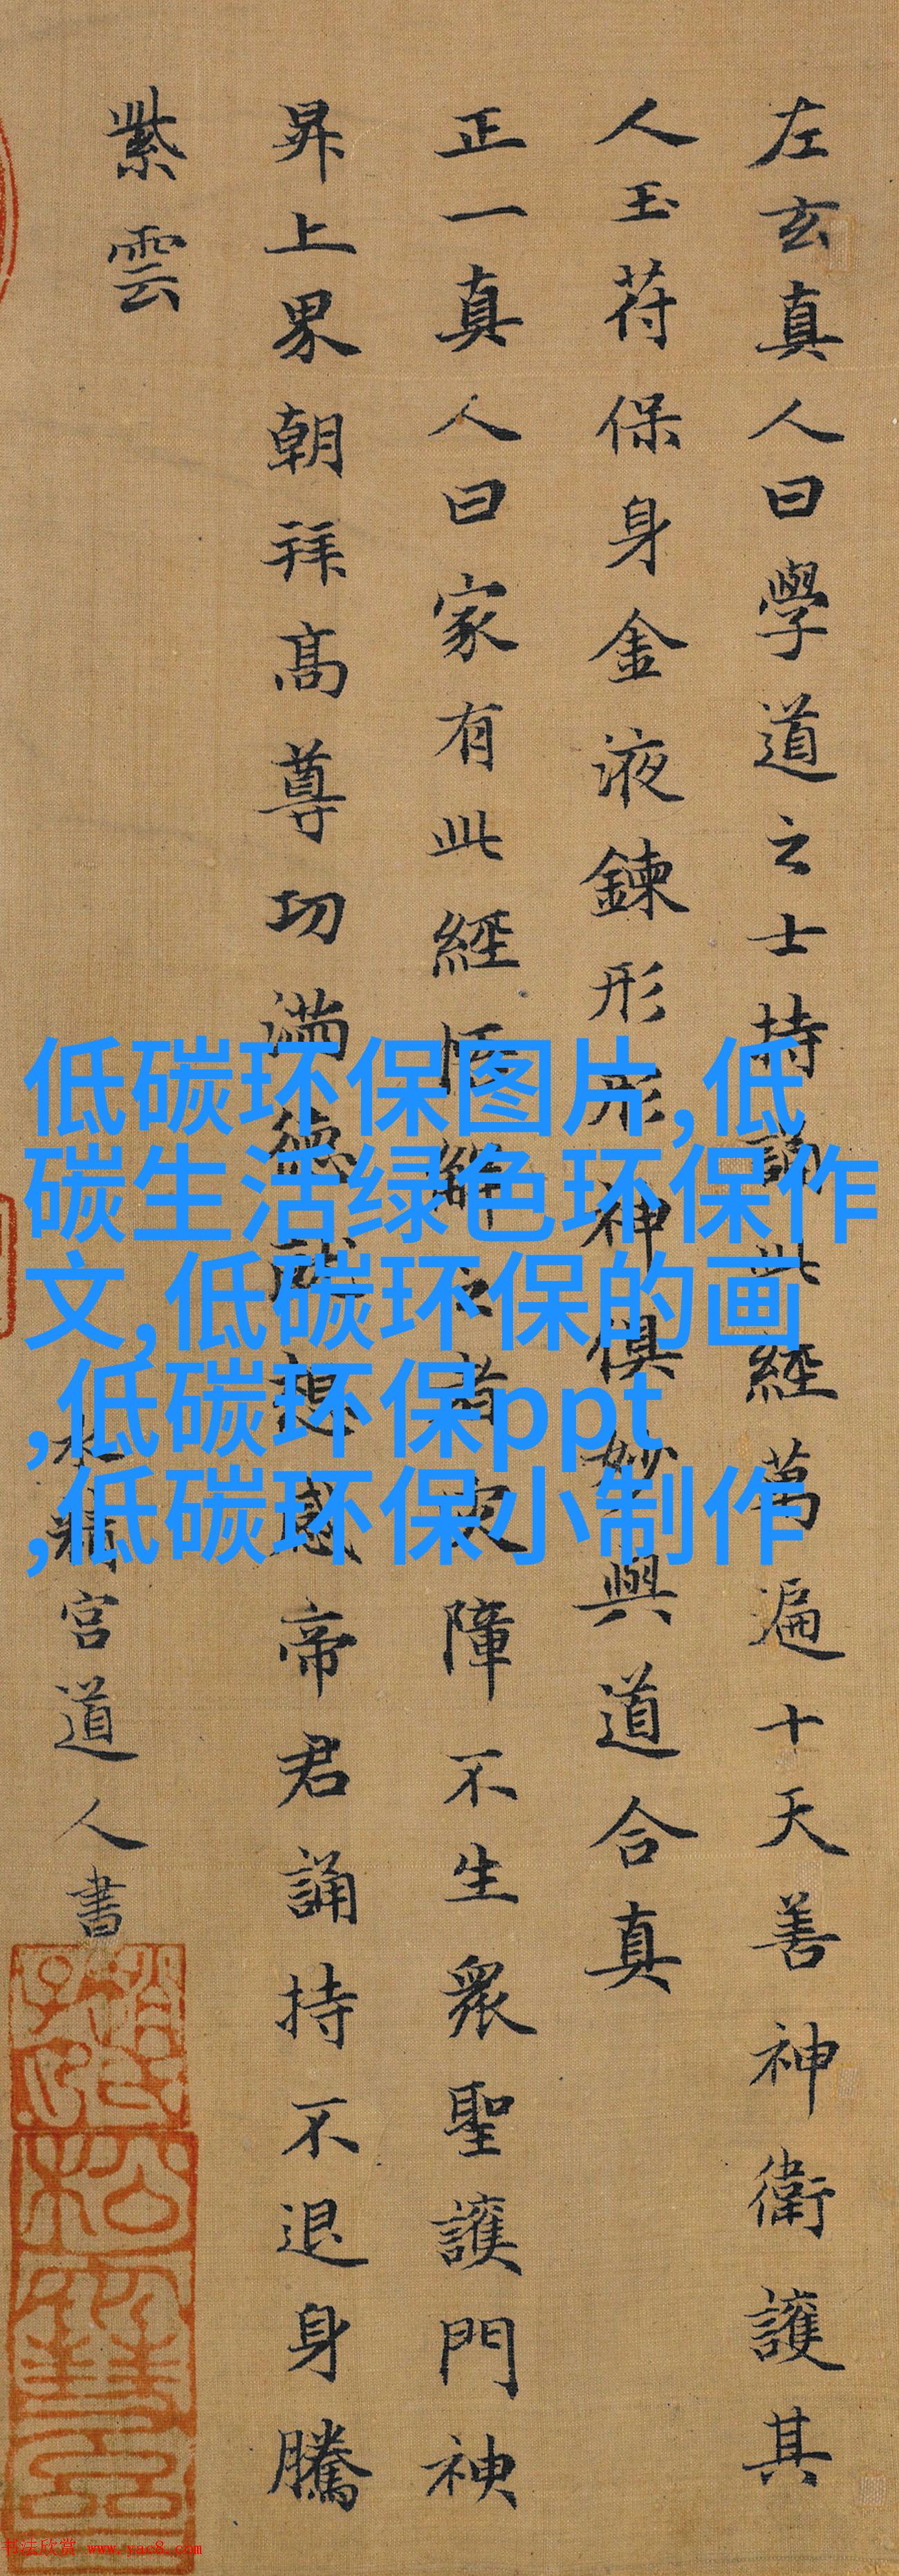 左玄真人曰學道之士持誦此經萬遍十天善神衛護其
人玉苻保身金液鍊形形神俱妙與道合真
正一真人曰家有此經悟解之者灾障不生衆聖護門神
昇上界朝拜髙尊功滿德就想感帝君誦持不退身騰
紫雲
水精宮道人書
低碳环保图片,低
碳生活绿色环保作
文,低碳环保的画
,低碳环保ppt
,低碳环保小制作
书法欣赏 www.yac8.com